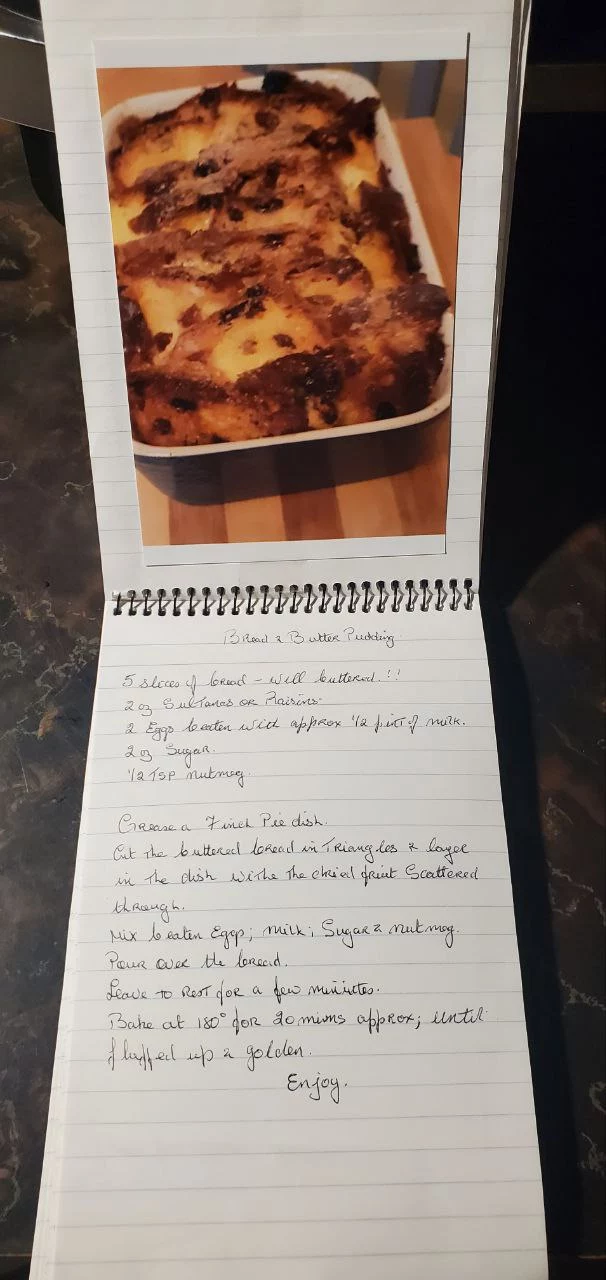 Bread & Butter Pudding
5 slices of bread - well buttered.!!
2 oz Sultanas or Raisins.
2 Eggs beaten with approx 1/2 pint of milk.
2 oz Sugar.
1/2 Tsp nutmeg.
Grease a 7 inch Pie dish.
Cut the buttered bread in Triangles & layer
in the dish withe the dried fruit Scattered
through.
Mix beaten Eggs; milk; Sugar & nutmeg.
Pour over the bread.
Leave to Rest for a few minutes.
Bake at 180° for 20 mins approx; until
fluffed up & golden.
Enjoy.